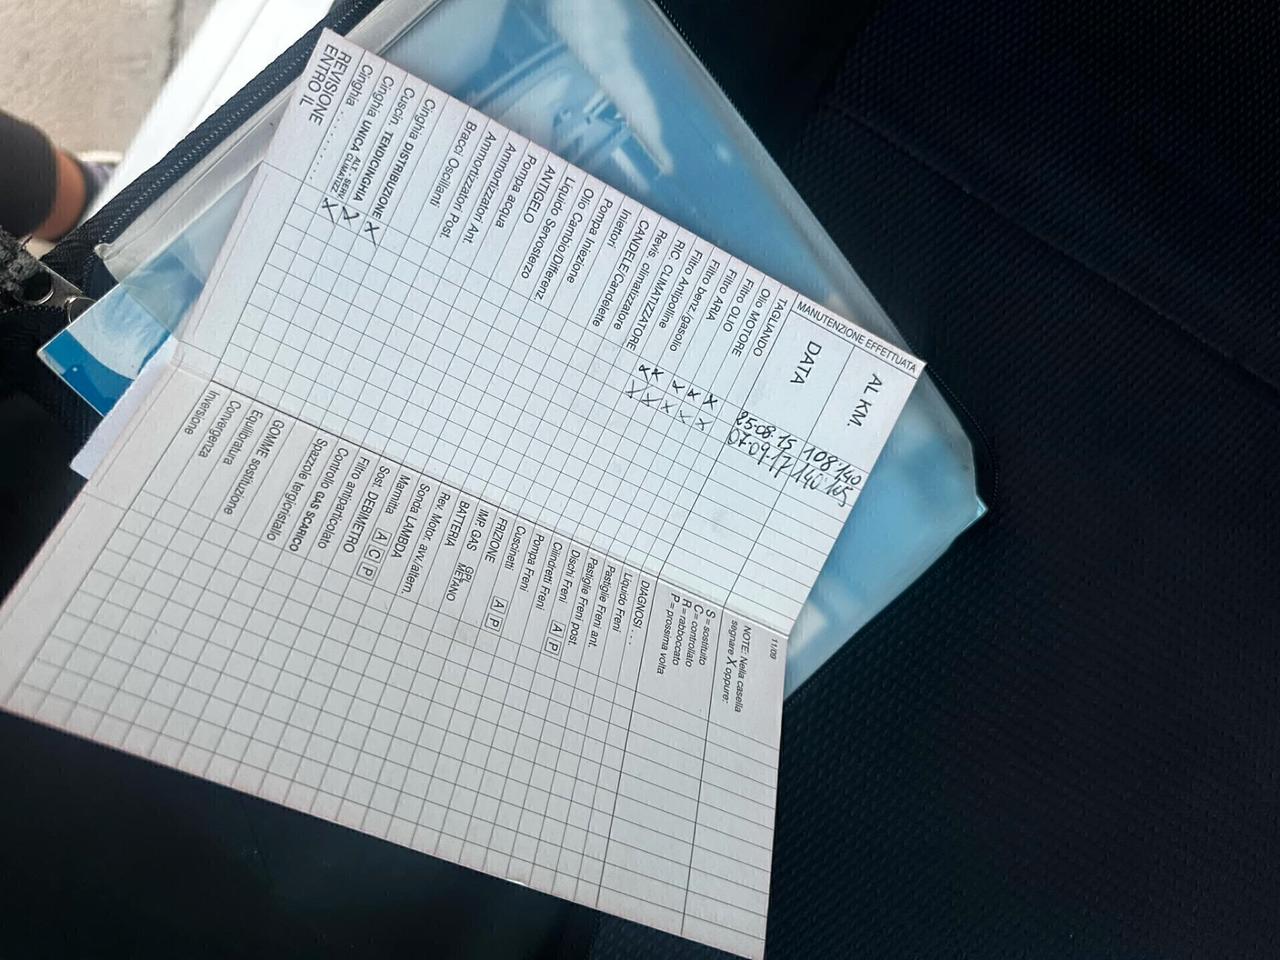 MANUTENZIONE EFFETTUATA
AL KM.
108140
140165
DATA
25.08.15
07.09.17
TAGLIANDO
Olio MOTORE
Filtro OLIO
Filtro ARIA
Filtro benz./gasolio
Filtro Antipolline
RIC. CLIMATIZZATORE
Revis. climatizzatore
CANDELE/Candelette
Iniettori
Pompa Iniezione
Olio Cambio/Differenz.
Liquido Servosterzo
ANTIGELO
Pompa acqua
Ammortizzatori Ant.
Ammortizzatori Post.
Bracci Oscillanti
Cinghia DISTRIBUZIONE X
Cuscin. TENDICINGHIA
Cinghia UNICA ALT.-SERV. CLIMATIZZ. X
Cinghia ..........
REVISIONE
ENTRO IL
11/09
NOTE: Nella casella
segnare X oppure:
S = sostituito
C = controllato
R = rabboccato
P = prossima volta
DIAGNOSI ...
Liquido Freni
Pastiglie Freni ant.
Pastiglie Freni post.
Dischi Freni A P
Cilindretti Freni
Pompa Freni
Cuscinetti A P
FRIZIONE
IMP. GAS GPL METANO
BATTERIA
Rev. Motor. avv./altern.
Sonda LAMBDA
Marmitta A C P
Sost. DEBIMETRO
Filtro antiparticolato
Controllo GAS SCARICO
Spazzole tergicristallo
GOMME sostituzione
Equilibratura
Convergenza
Inversione